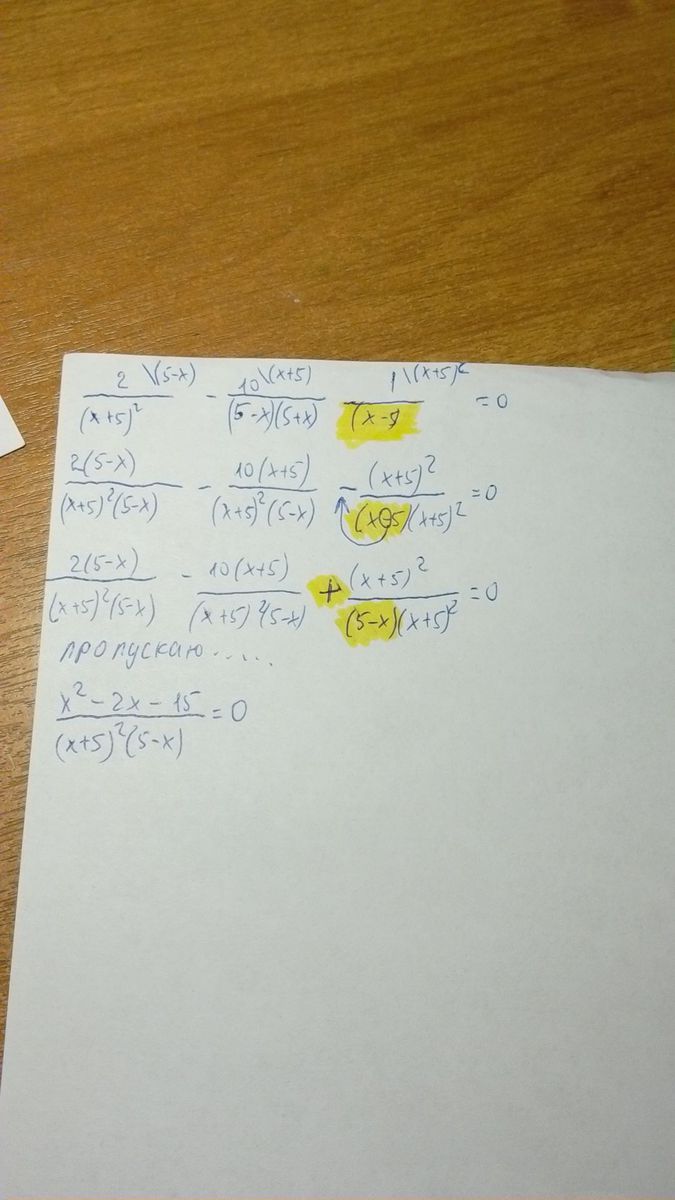 2 \(5-x) / (x+5)² - 10 \(x+5) / (5-x)(5+x) 1 \(x+5)² / (x-5) = 0
2(5-x) / (x+5)²(5-x) - 10(x+5) / (x+5)²(5-x) - (x+5)² / (x-5)(x+5)² = 0
2(5-x) / (x+5)²(5-x) - 10(x+5) / (x+5)²(5-x) + (x+5)² / (5-x)(x+5)² = 0
пропускаю.....
x² - 2x - 15 / (x+5)²(5-x) = 0